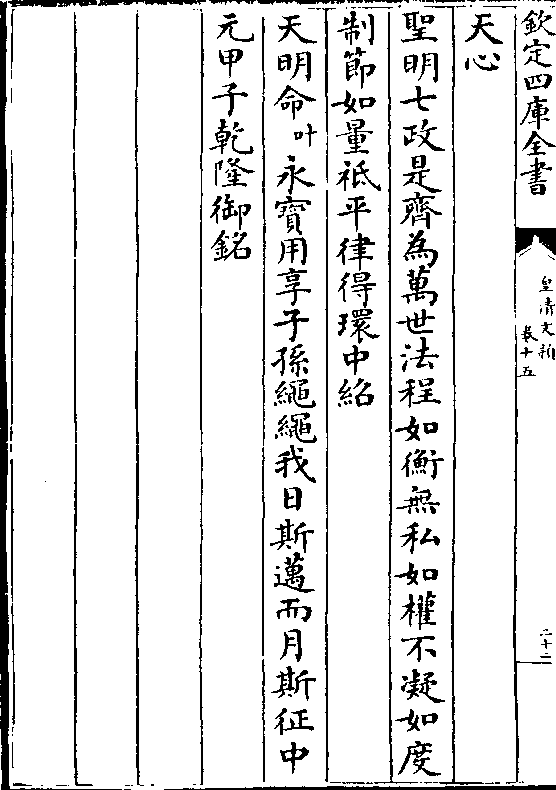 欽定四庫全書
皇清文穎
卷十五
二十二
天心
聖明七政是齊為萬世法程如衡無私如權不凝如度
制節如量祗平律得環中紹
天明命叶永寳用享子孫繩繩我日斯邁而月斯征中
元甲子乾隆御銘